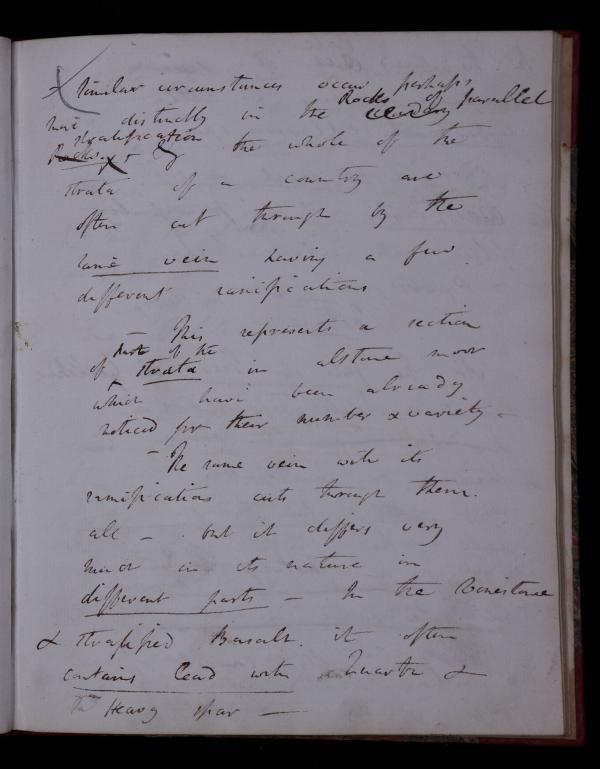 Similar circumstances occur perhaps
most distinctly in the Rocks of parallel
stratification
Rocks. & the whole of the
strata of a country are
often cut through by the
same vein having a few
different ramifications
— This represents a section
of part of the strata in alstone moor
which have been already
noticed for their number & variety –
– The same vein with its
ramifications cuts through them
all – but it differs very
much in its nature in
different parts – In the limestone
& stratified Basalt. it often
contains lead with Quartz &
Heavy spar —